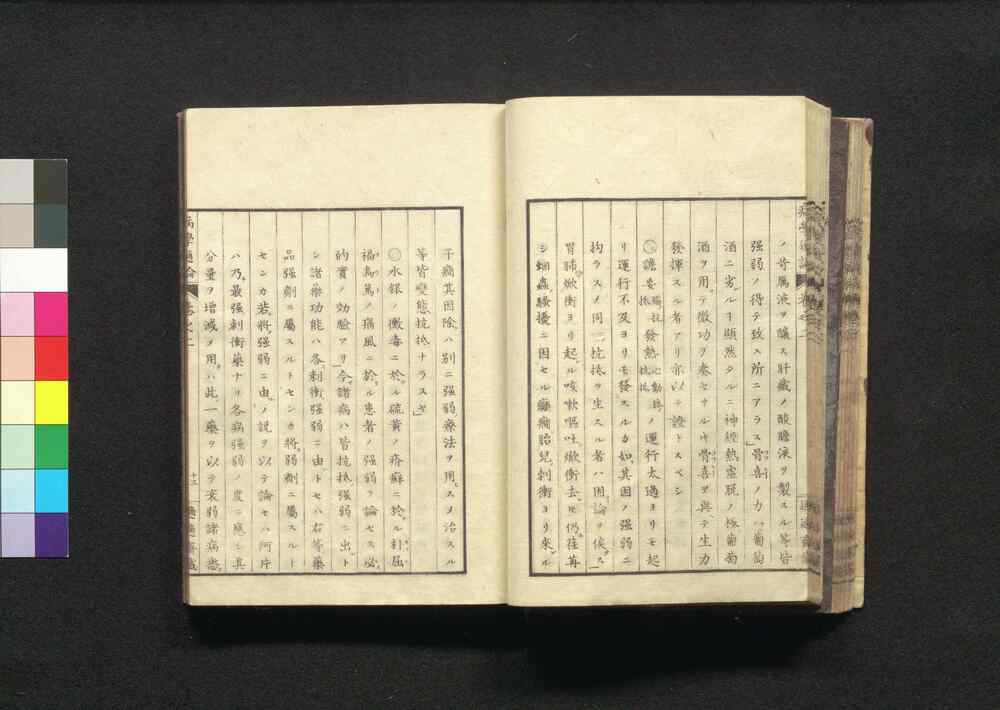 ノ骨属液ヲ醸ス肝蔵ノ酸膽液ヲ製スル等皆
強弱ノ得テ致ス所ニアラス骨喜ノ力ハ葡萄
酒ニ劣ル顕然タルニ神經熱虚脱ノ極葡萄
酒ヲ用テ微功ヲ奏セサル骨喜ヲ與テ生力
発揮スル者アリ亦以テ證トスベシ
譫妄發熱ノ運行太過ヨリモ起
リ運行不及ヨリモ發スルカ如其因ノ強弱ニ
拘ラスメ同一抗抵ヲ生スル者ハ因論ヲ俟ス
胃肺焮衝ヨリ起ル咳嗽嘔吐焮衝去仍荏苒
シ蛔蟲騒擾ニ因セル癲癇胎兒刺衝ヨリ來ル
子癇其因除ハ別ニ強弱療法ヲ用スメ治スル
等皆變態抗抵ナラスヤ
水銀ノ黴毒ニ於ル硫黄ノ疥癬ニ於ル利屈
福烏篤ノ痛風ニ於ル患者ノ強弱ヲ論セス必
的實ノ効驗アリ今諸病ハ皆抗抵強弱ニ出ト
シ諸藥功能ハ各刺衝強弱ニ由トセハ右等藥
品強劑ニ属スルトセンカ將弱劑ニ属スルト
センカ若將強弱ニ由ノ説ヲ以テ論セハ阿片
ハ乃最強刺衝藥ナリ各病強弱ノ度ニ應シ其
分量ヲ増減メ用ハ此一藥ヲ以テ衰弱諸病悉
病學通論
巻之二